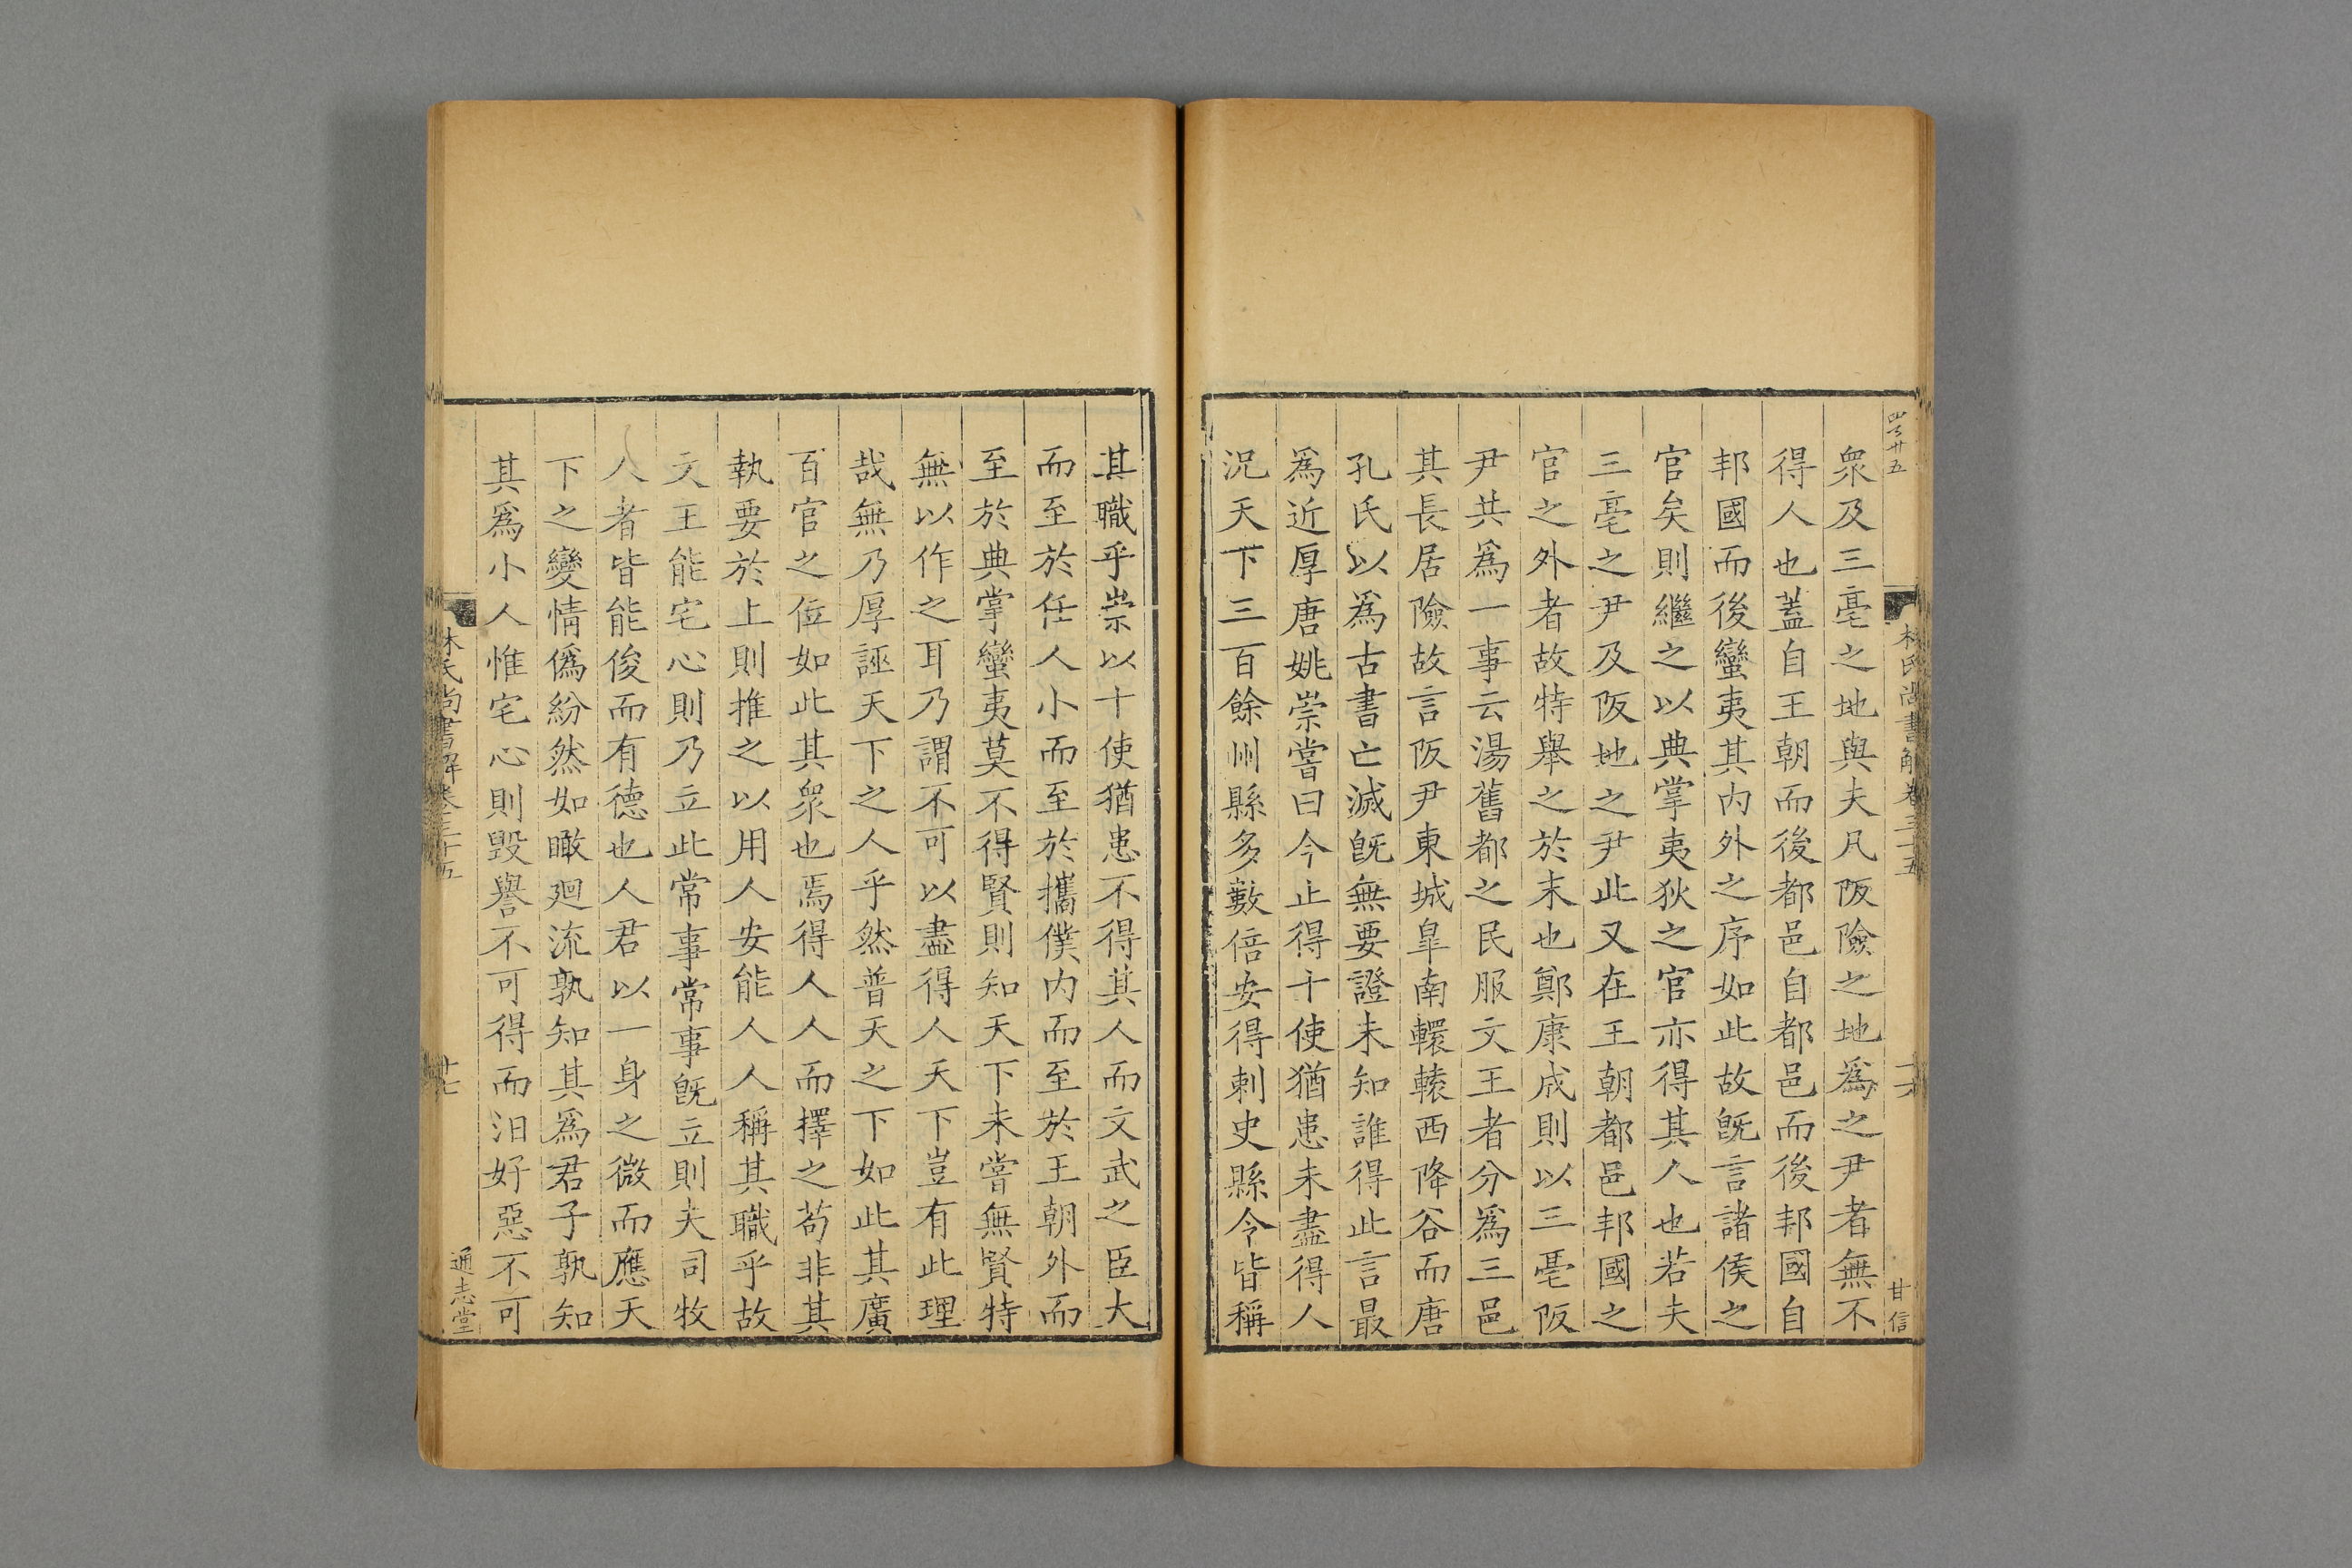 衆及三亳之地與夫凡阪險之地爲之尹者無不
得人也蓋自王朝而後都邑自都邑而後邦國自
邦國而後蠻夷其内外之序如此故旣言諸侯之
官矣則繼之以典掌夷狄之官亦得其人也若夫
三亳之尹及阪地之尹此又在王朝都邑邦國之
官之外者故特舉之於末也鄭康成則以三亳阪
尹共爲一事云湯舊都之民服文王者分爲三邑
其長居險故言阪尹東城皐南轘轅西降谷而唐
孔氏以爲古書亡滅旣無要證未知誰得此言最
爲近厚唐姚崇嘗曰今止得十使猶患未盡得人
況天下三百餘州縣多數倍安得刺史縣令皆稱
其職乎崇以十使猶患不得其人而文武之臣大
而至於任人小而至於攜僕内而至於王朝外而
至於典掌蠻夷莫不得賢則知天下未嘗無賢特
無以作之耳乃謂不可以盡得人天下豈有此理
哉無乃厚誣天下之人乎然普天之下如此其廣
百官之位如此其衆也焉得人人而擇之苟非其
執要於上則推之以用人安能人人稱其職乎故
文王能宅心則乃立此常事常事旣立則夫司牧
人者皆能俊而有德也人君以一身之微而應天
下之變情僞紛然如瞰廻流孰知其爲君子孰知
其爲小人惟宅心則毀譽不可得而汨好惡不可
林氏尚書解卷三十五
十七
通志堂
林氏尚書解卷三十五
十六
甘信